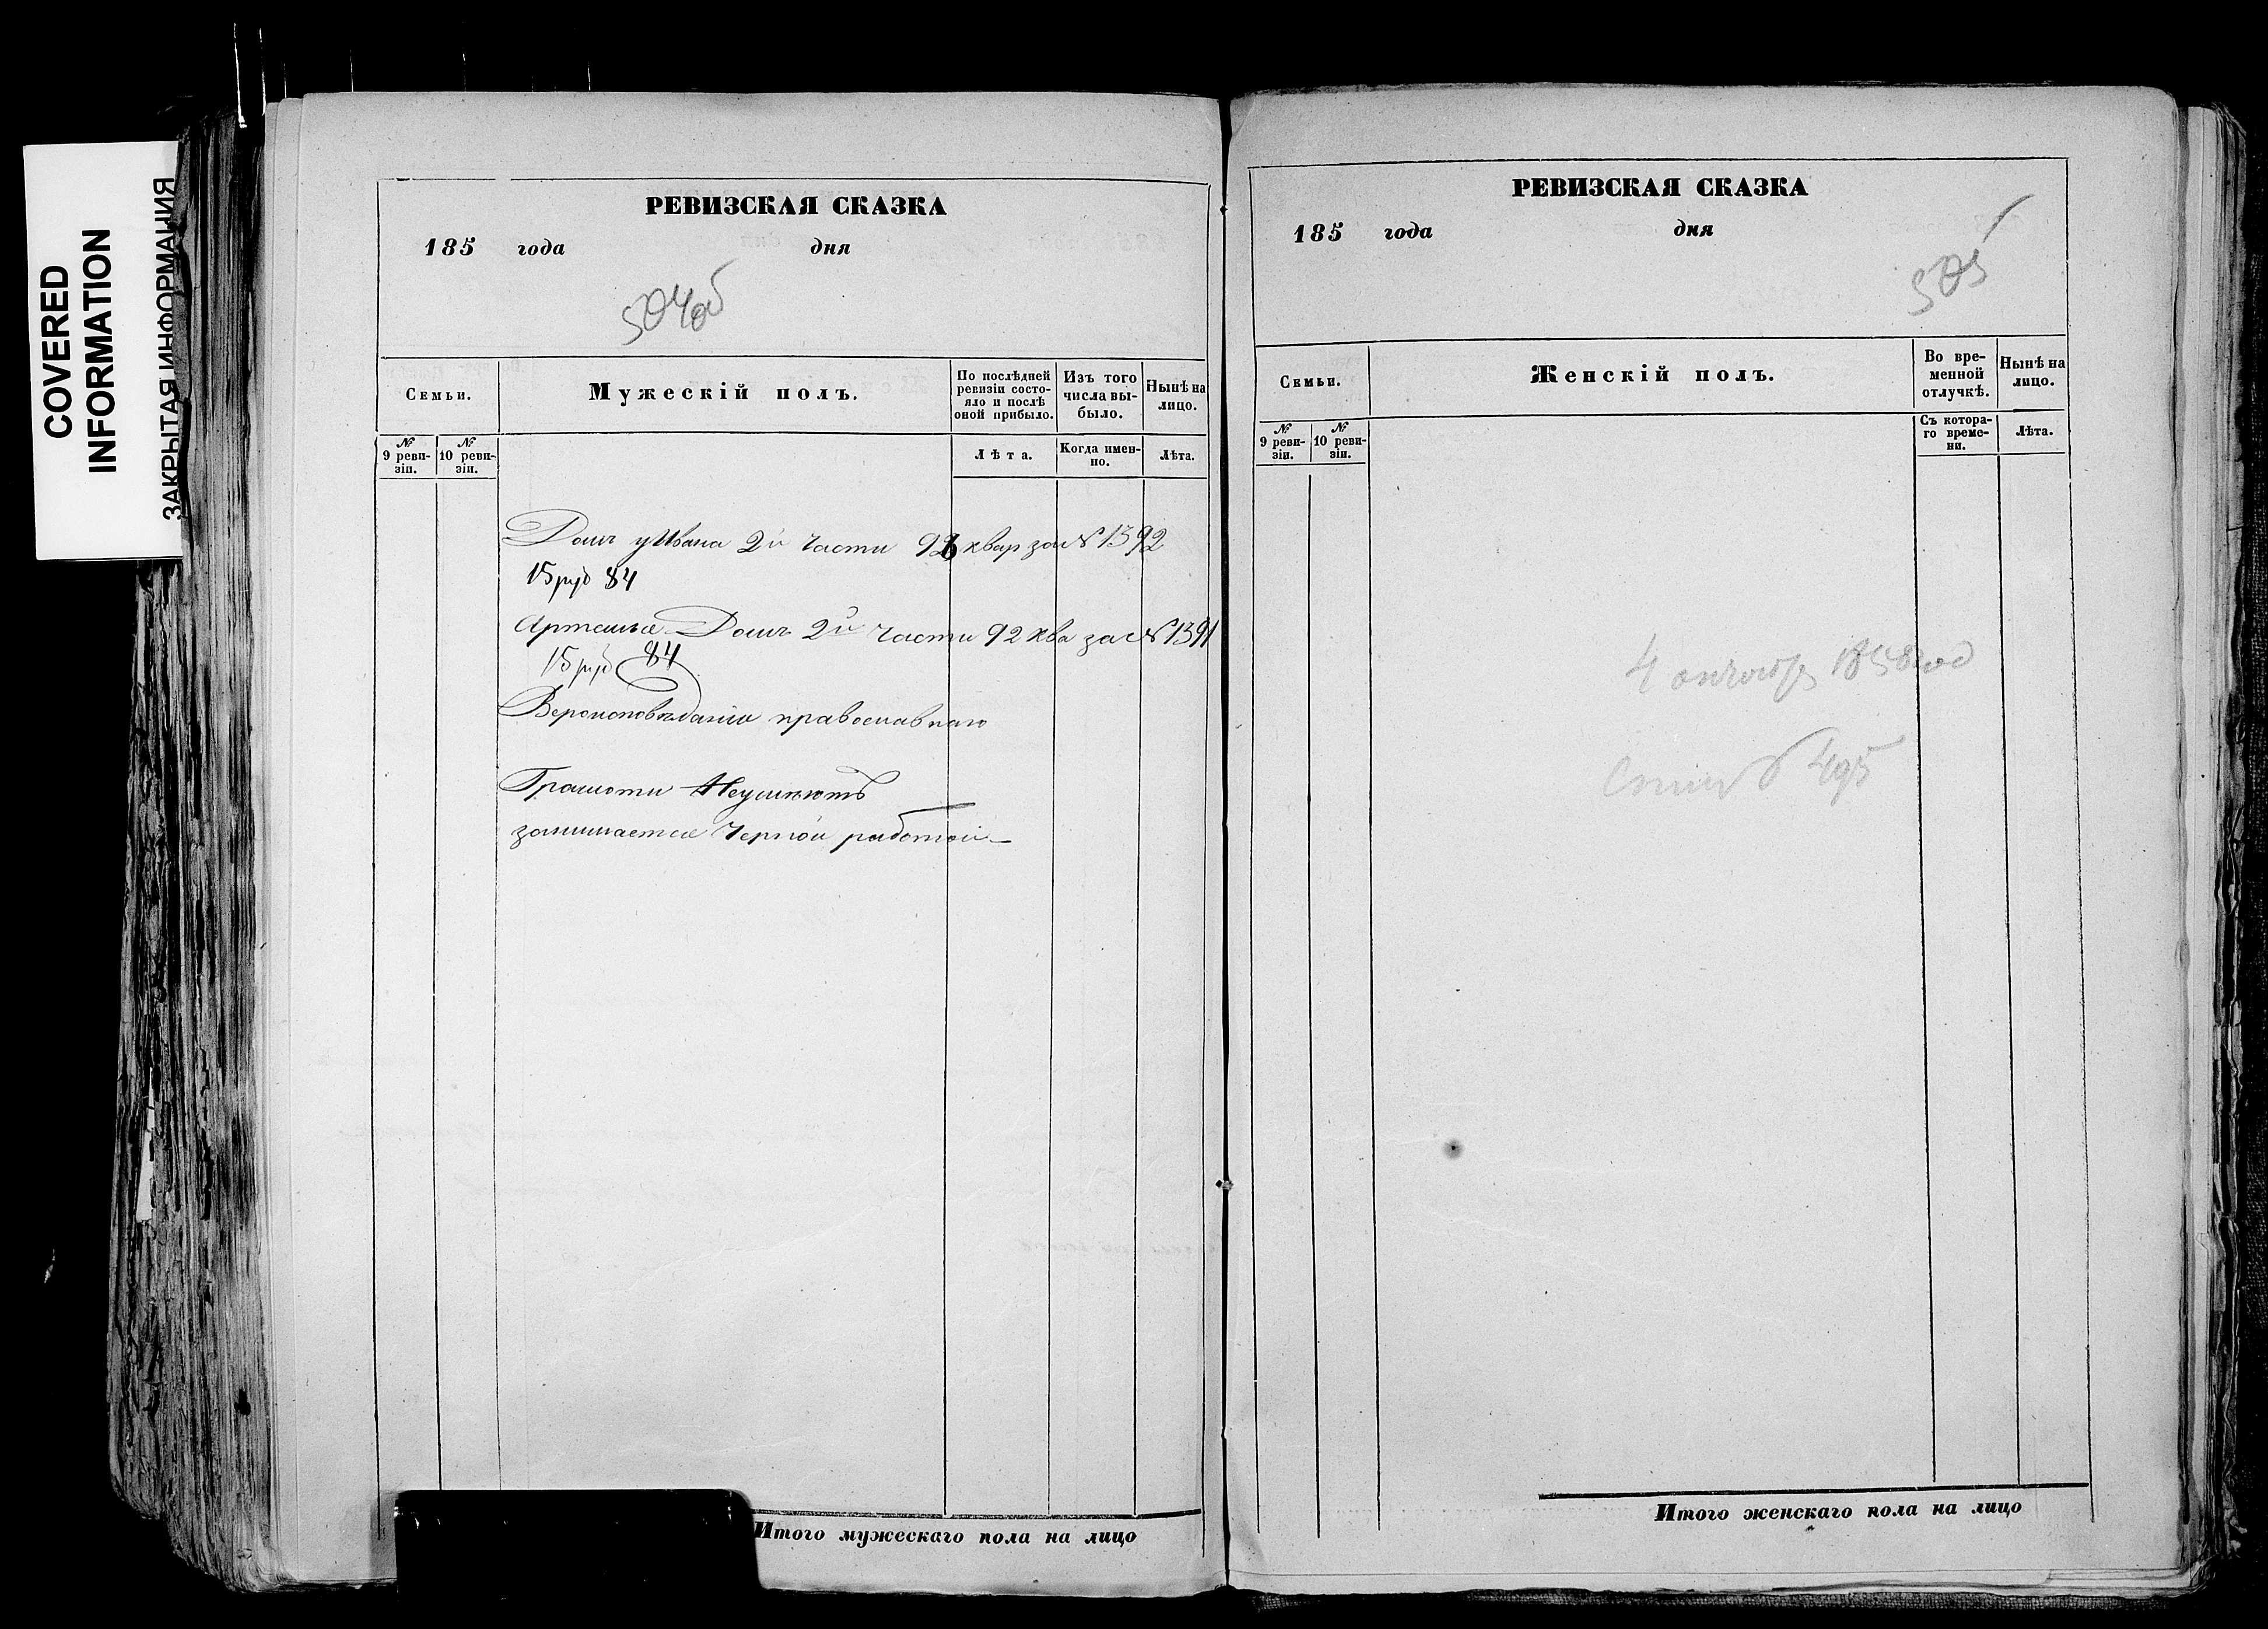 COVERED
INFORMATION
ЗАКРЫТАЯ ИНФОРМАЦИЯ
РЕВИЗСКАЯ СКАЗКА
185 года дня
504об
Семьи.
Мужескій полъ.
По послѣдней ревизіи состояло и послѣ оной прибыло.
Изъ того числа выбыло.
Нынѣ на лицо.
№ 9 ревизіи.
№ 10 ревизіи.
Лѣта.
Когда именно.
Лѣта.
Домъ у Ивана 2й части 92 квар за № 1392
15 руб 84
Артемья Домъ 2й части 92 ква за № 1391
15 руб 84
Вероисповѣданія православнаго
Грамоти Неумѣютъ
занимается Черной работой
Итого мужескаго пола на лицо
РЕВИЗСКАЯ СКАЗКА
185 года дня
505
Семьи.
Женскій полъ.
Во временной отлучкѣ.
Нынѣ на лицо.
№ 9 ревизіи.
№ 10 ревизіи.
Съ котораго времени.
Лѣта.
4 октября 1858 год
495
Итого женскаго пола на лицо